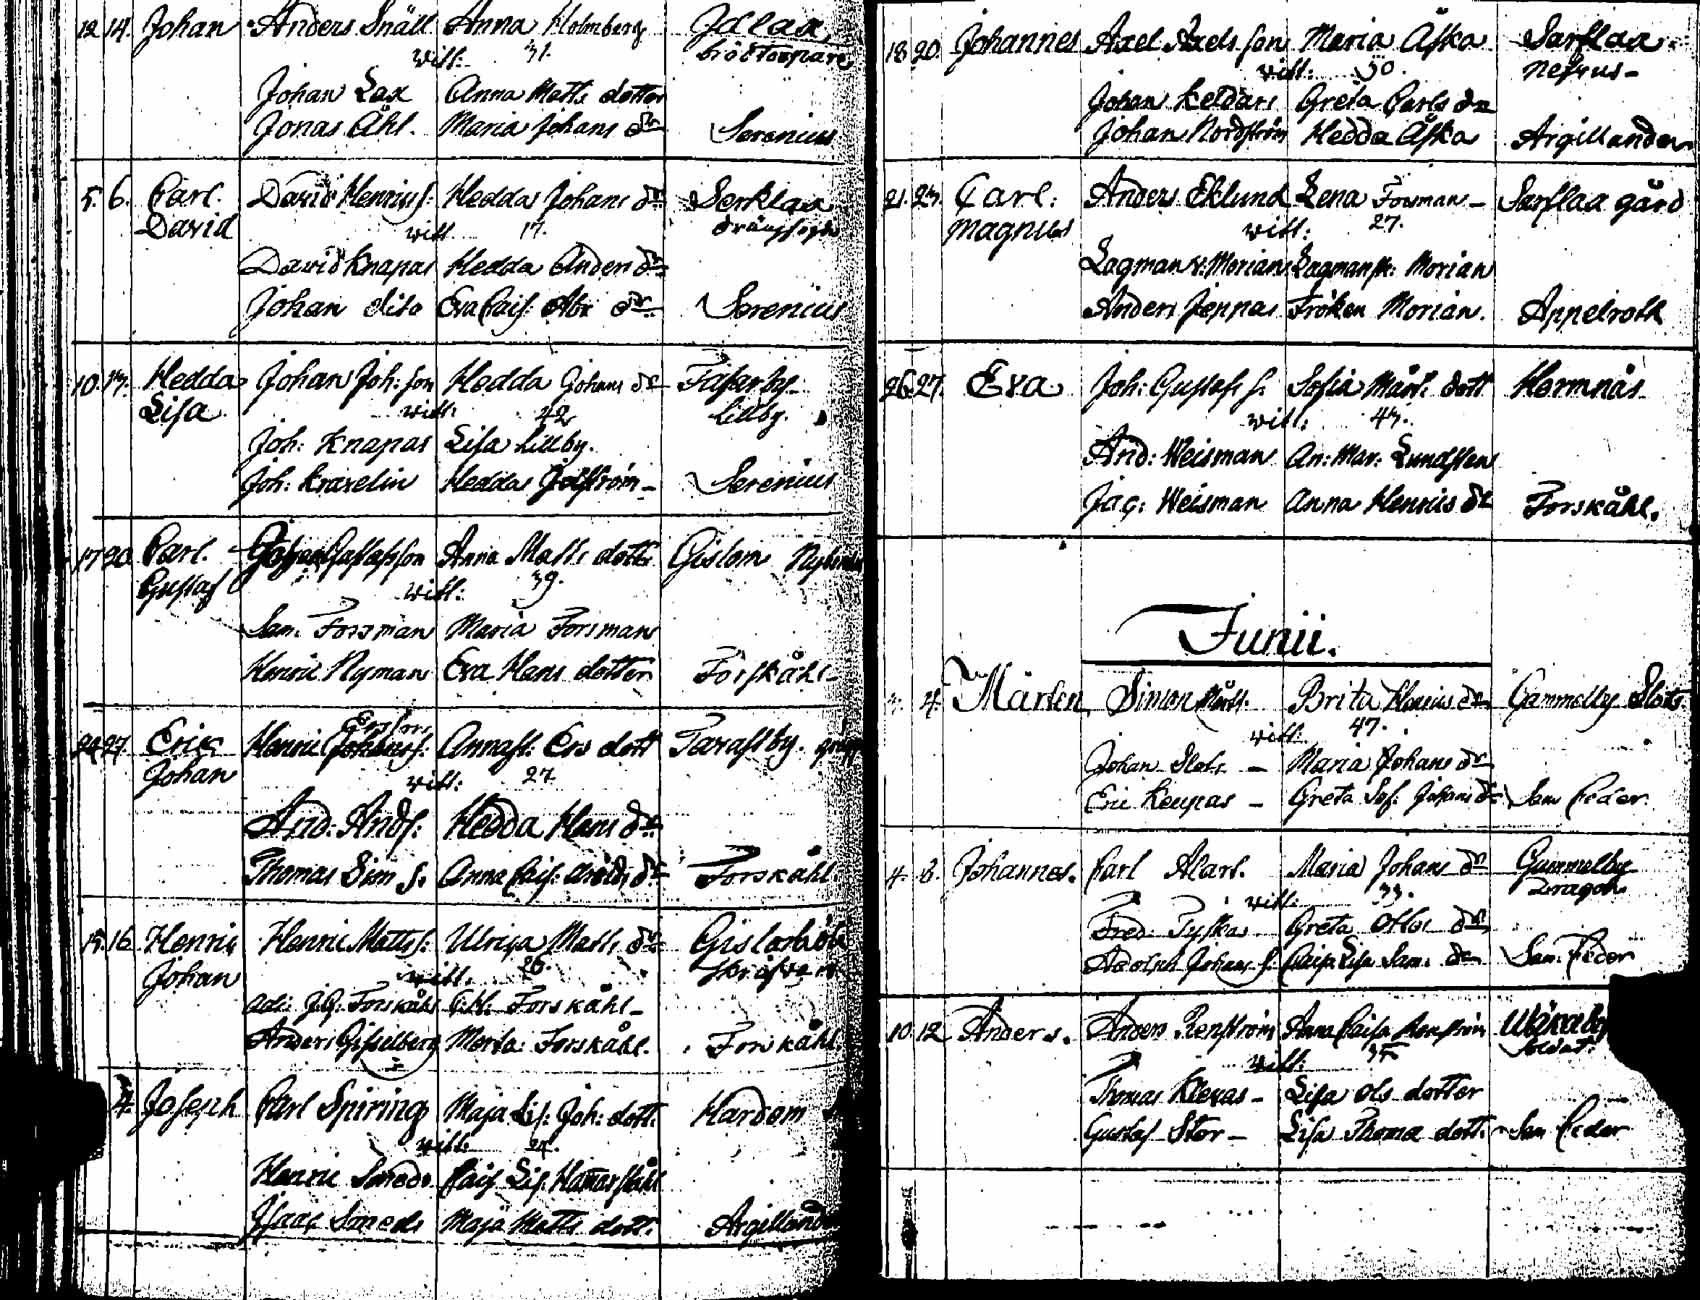 12 14. Johan Anders Snäll Anna Holmberg Idlax
witt: 31.
Johan Lax Anna Matts dotter
Jonas Åhl. Maria Johans dr Serenius
5. 6. Carl. David Henrics s. Hedda Johans dr Serklax
David witt 17.
David Knapas Hedda Anders dr
Johan dito Eva Cais: Abr dr Serenius
10. 13. Hedda Johan Joh: son Hedda Johans dr Tasarby
Lisa witt: 42 Lillby.
Joh: Knapas Lisa Lillby.
Joh: Kraxelin Hedda Serenius
17 20. Carl. Gustafsson Anna Matts dotter Gislom
Gustaf witt: 39.
Sam. Forsman Maria Forsmans
Henric Nyman Eva Hans dotter Forskåhl
24 27. Eric Henric Ersson Anna St. Ers dott Tarastby.
Johan witt: 27.
And: Ands: Hedda Hans dr
Thomas Sim s. Anna Cais: dr Forskåhl
15. 16. Henric Henric Matts s: Ulrica Matts dr
Johan witt: 26.
Forskåhl Forskåhl
Anders Gisselberg Forskåhl. Forskåhl
4. Joseph Carl Spiring Maja Lis: Joh: dott. Hardom
witt:
Henric Smeds Cais. Lis.
Isaac Smeds Maja Matts dott. Argillander
18 20. Johannes Axel Axels son Maria Åska Sarflax
witt: 30.
Johan Keldars Greta Carls dr
Johan Nordström Hedda Åska Argillander
21. 23. Carl. Anders Eklund Lena Forsman Sarflax gård
Magnus witt: 27.
Lagman v: Morian Lagmansk: Morian
Anders Jeppas Fröken Morian. Appelroth
26 27. Eva Joh: Gustafs s. Sofia Mårt. dott Hermnäs
witt: 43.
And: Weisman An: Mar: Lundsten
Jac: Weisman Anna Henrics dr Forskåhl.
Junii.
3. 4. Mårten Simon Mårts. Brita Henrics dr Gammelby Slots
witt: 47.
Johan Slots Maria Johans dr
Eric Keupas Greta Sof. Johans dr Sam Ceder
4. 8. Johannes. Carl Alart. Maria Johans dr Gammelby
witt: 33. Dragon
Fred. Tyska Greta Olos dr
Adolph Johans s. Caisa Lisa Sam. dr Sam. Ceder
10. 12. Anders. Anders Renström Anna Caisa Renström
witt: 35 Soldat.
Thomas Klevas Lisa Ols dotter
Gustaf Stor Lisa Thoma dott. Sam Ceder